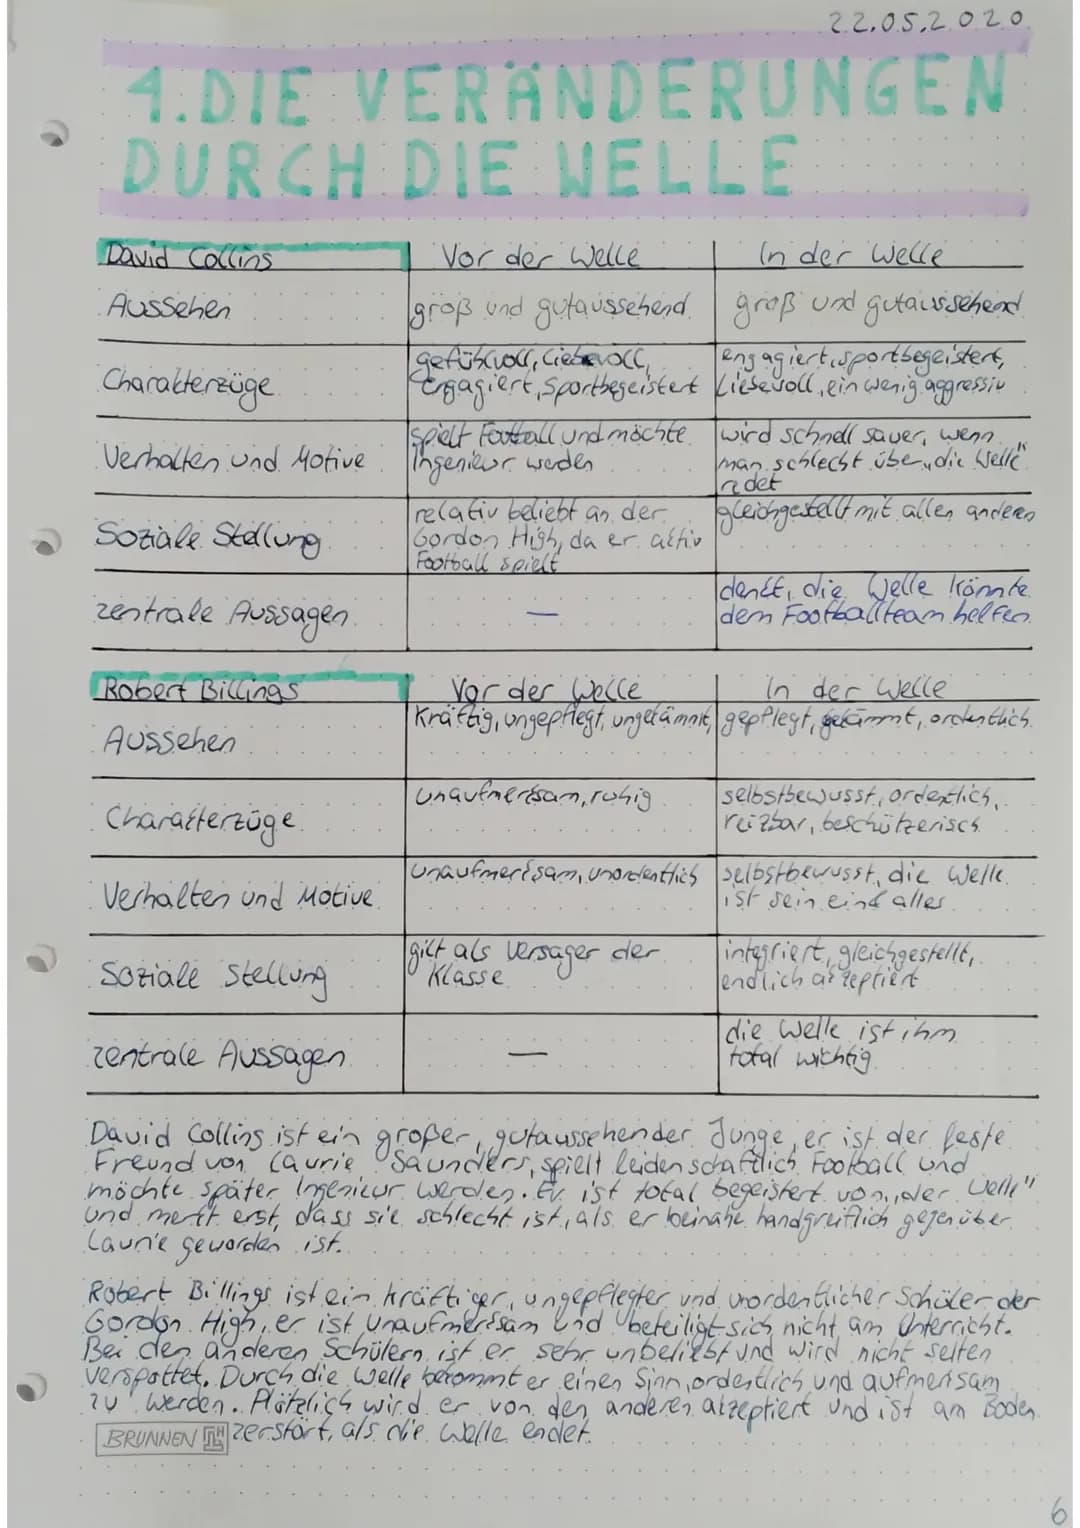 22.05.2020
4. DIE VERÄNDERUNGEN
DURCH DIE WELLE
David Collins
Vor der Welle
In der Welle
Aussehen
groß und gutaussehend
groß und gutaussehend
Charakterzüge
gefühlvoll, liebevoll,
Engagiert, Sportbegeistert
engagiert, sportbegeistert,
liebevoll, ein wenig aggressiv
Verhalten und Motive
spielt Football und möchte
Ingenieur werden
wird schnell sauer, wenn
man schlecht über „die Welle"
redet
Soziale Stellung
relativ beliebt an der
Gordon High, da er aktiv
Football spielt
gleichgestellt mit allen anderen
zentrale Aussagen
—
denkt, die Welle könnte
dem Footballteam helfen
Robert Billings
Vor der Welle
In der Welle
Aussehen
Kräftig, ungepflegt, ungekämmt,
gepflegt, gekämmt, ordentlich
Charakterzüge
unaufmerksam, ruhig
selbstbewusst, ordentlich,
reizbar, beschützerisch
Verhalten und Motive
unaufmerksam, unordentlich
selbstbewusst, die Welle
ist sein ein & alles
Soziale Stellung
gilt als Versager der
Klasse
integriert, gleichgestellt,
endlich akzeptiert
zentrale Aussagen
—
die Welle ist ihm
total wichtig
David Collins ist ein großer, gutaussehender Junge, er ist der feste
Freund von Laurie Saunders, spielt leidenschaftlich Football und
möchte später Ingenieur werden. Er ist total begeistert von „der Welle"
und merkt erst, dass sie schlecht ist, als er beinahe handgreiflich gegenüber
Laurie geworden ist.
Robert Billings ist ein kräftiger, ungepflegter und unordentlicher Schüler der
Gordon High, er ist unaufmerksam und beteiligt sich nicht am Unterricht.
Bei den anderen Schülern ist er sehr unbeliebt und wird nicht selten
verspottet. Durch die Welle bekommt er einen Sinn, ordentlich und aufmerksam
zu werden. Plötzlich wird er von den anderen akzeptiert und ist am Boden
BRUNNEN zerstört, als die Welle endet.
6